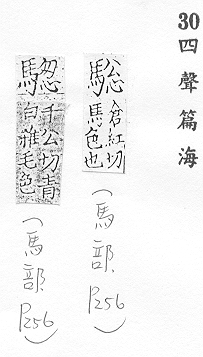 30 四聲篇海
倉紅切
馬色也
(馬部 P256)
千公切青
白雜毛色
(馬部 P256)